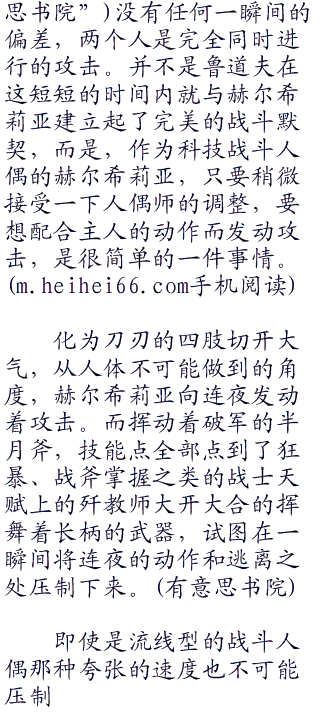 思书院”)没有任何一瞬间的
偏差，两个人是完全同时进
行的攻击。并不是鲁道夫在
这短短的时间内就与赫尔希
莉亚建立起了完美的战斗默
契，而是，作为科技战斗人
偶的赫尔希莉亚，只要稍微
接受一下人偶师的调整，要
想配合主人的动作而发动攻
击，是很简单的一件事情。
(m.heihei66.com手机阅读)
化为刀刃的四肢切开大
气，从人体不可能做到的角
度，赫尔希莉亚向连夜发动
着攻击。而挥动着破军的半
月斧，技能点全部点到了狂
暴、战斧掌握之类的战士天
赋上的歼教师大开大合的挥
舞着长柄的武器，试图在一
瞬间将连夜的动作和逃离之
处压制下来。(有意思书院)
即使是流线型的战斗人
偶那种夸张的速度也不可能
压制